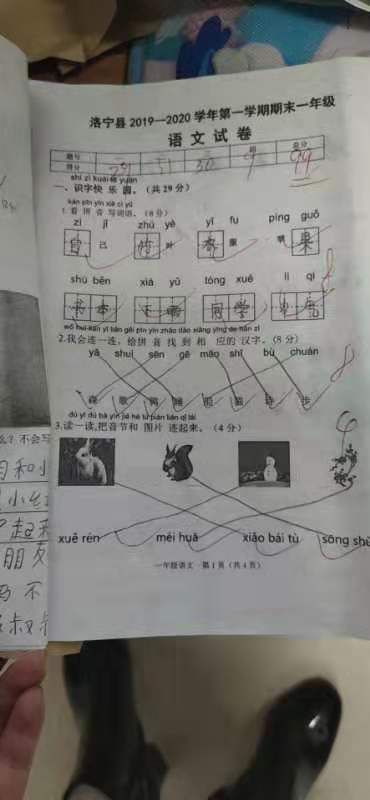 洛宁县2019—2020学年第一学期期末一年级
语文试卷
题号 总分
得分 29 31 30 9 99
shí zì kuài lè yuán
一、识字快乐园。（共29分）
kàn pīn yīn xiě cí yǔ
1.看拼音写词语。（8分）
zì jǐ zhú yè yī fu píng guǒ
自己 竹叶 衣服 苹果
shū běn xià yǔ tóng xué lì qi
书本 下雨 同学 力气
8
2.我会连一连，给拼音找到相应的汉字。（8分）
yā shuì sēn gē māo shī bù chuán
8
森 歌 鸭 睡 船 猫 诗 步
3.读一读,把音节和图片连起来。（4分）
4
xuě rén méi huā xiǎo bái tù sōng shǔ
一年级语文·第1页（共4页）
不会写
和小
小红
起来
朋友
不
叔叔